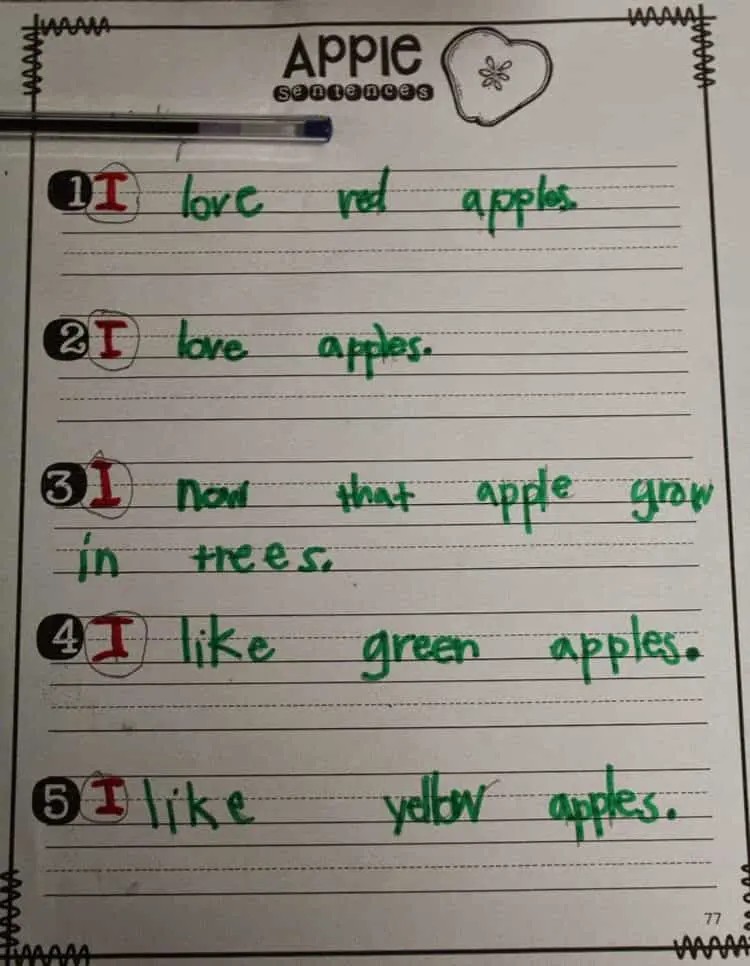 Apple
sentences
1 I love red apples.
2 I love apples.
3 I now that apple grow
in trees.
4 I like green apples.
5 I like yellow apples.
77